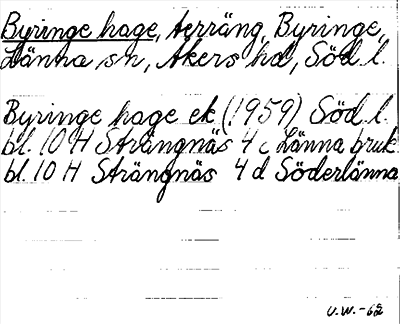 Byringe hage, terräng, Byringe,
Länna sn, Åkers hd, Söd l.
Byringe hage ek (1959) Söd l.
bl. 10 H Strängnäs 4 c Länna bruk
bl. 10 H Strängnäs 4 d Söderlänna
U.W.-62